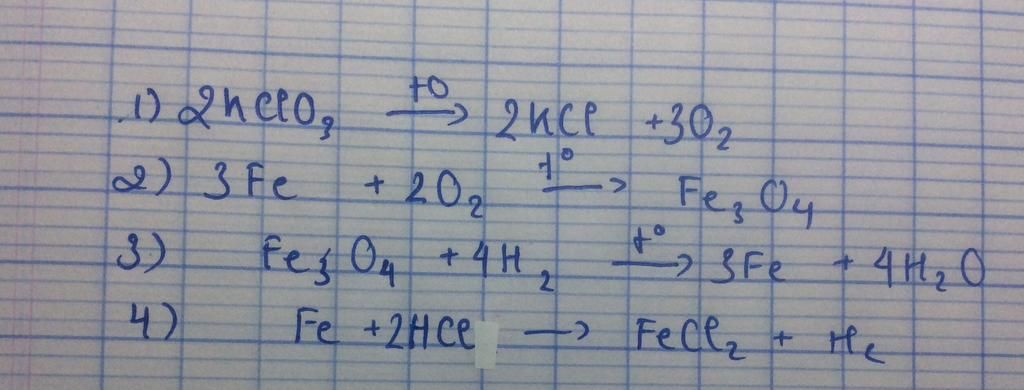 1) 2KClO₃ —t⁰→ 2KCl + 3O₂
2) 3Fe + 2O₂ —t⁰→ Fe₃O₄
3) Fe₃O₄ + 4H₂ —t⁰→ 3Fe + 4H₂O
4) Fe + 2HCl → FeCl₂ + H₂